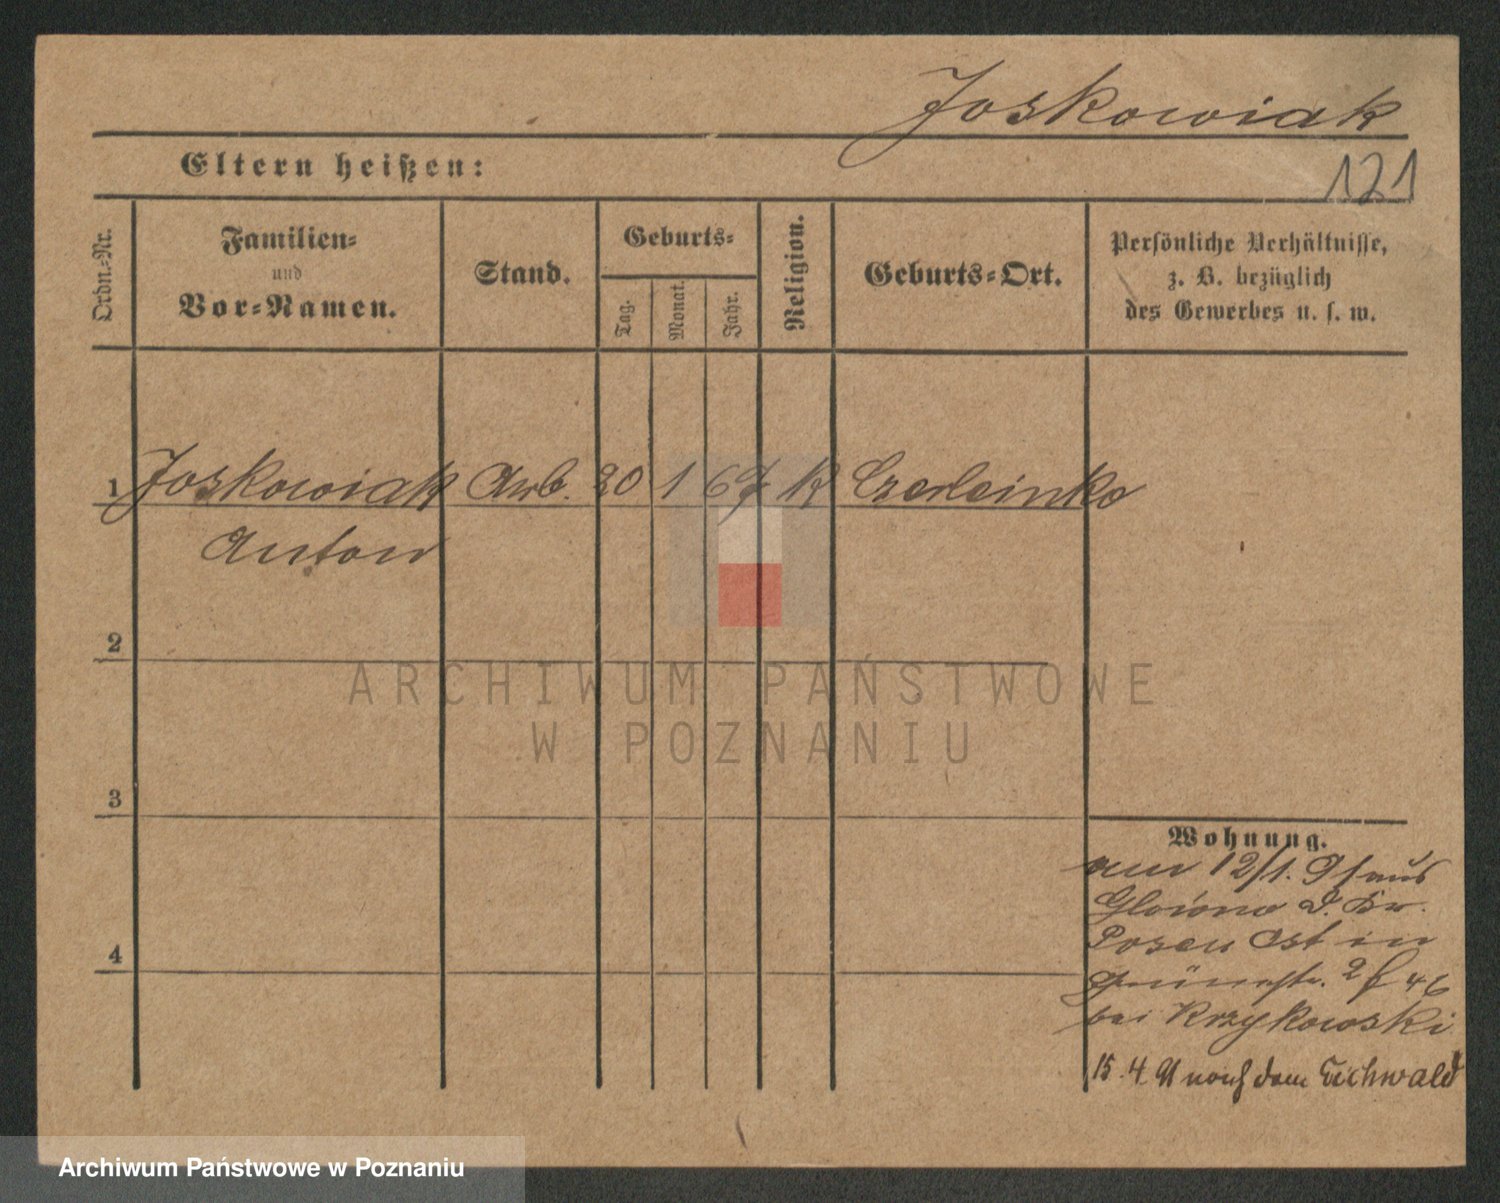 Joskowiak
121
Eltern heißen:
Ordn.-Nr.
Familien-
und
Vor-Namen.
Stand.
Geburts-
Tag.
Monat.
Jahr.
Religion.
Geburts-Ort.
Persönliche Verhältnisse,
z. B. bezüglich
des Gewerbes u. s. w.
1 Joskowiak Arb. 20 1 67 K Czerleinko
Anton
2
ARCHIWUM PAŃSTWOWE
W POZNANIU
3
4
Wohnung.
12/1. 91 aus
Glowno Kr.
Posen Ost in
2 46
bei Krzykowski
15.4.91 nach dem Eichwald
Archiwum Państwowe w Poznaniu